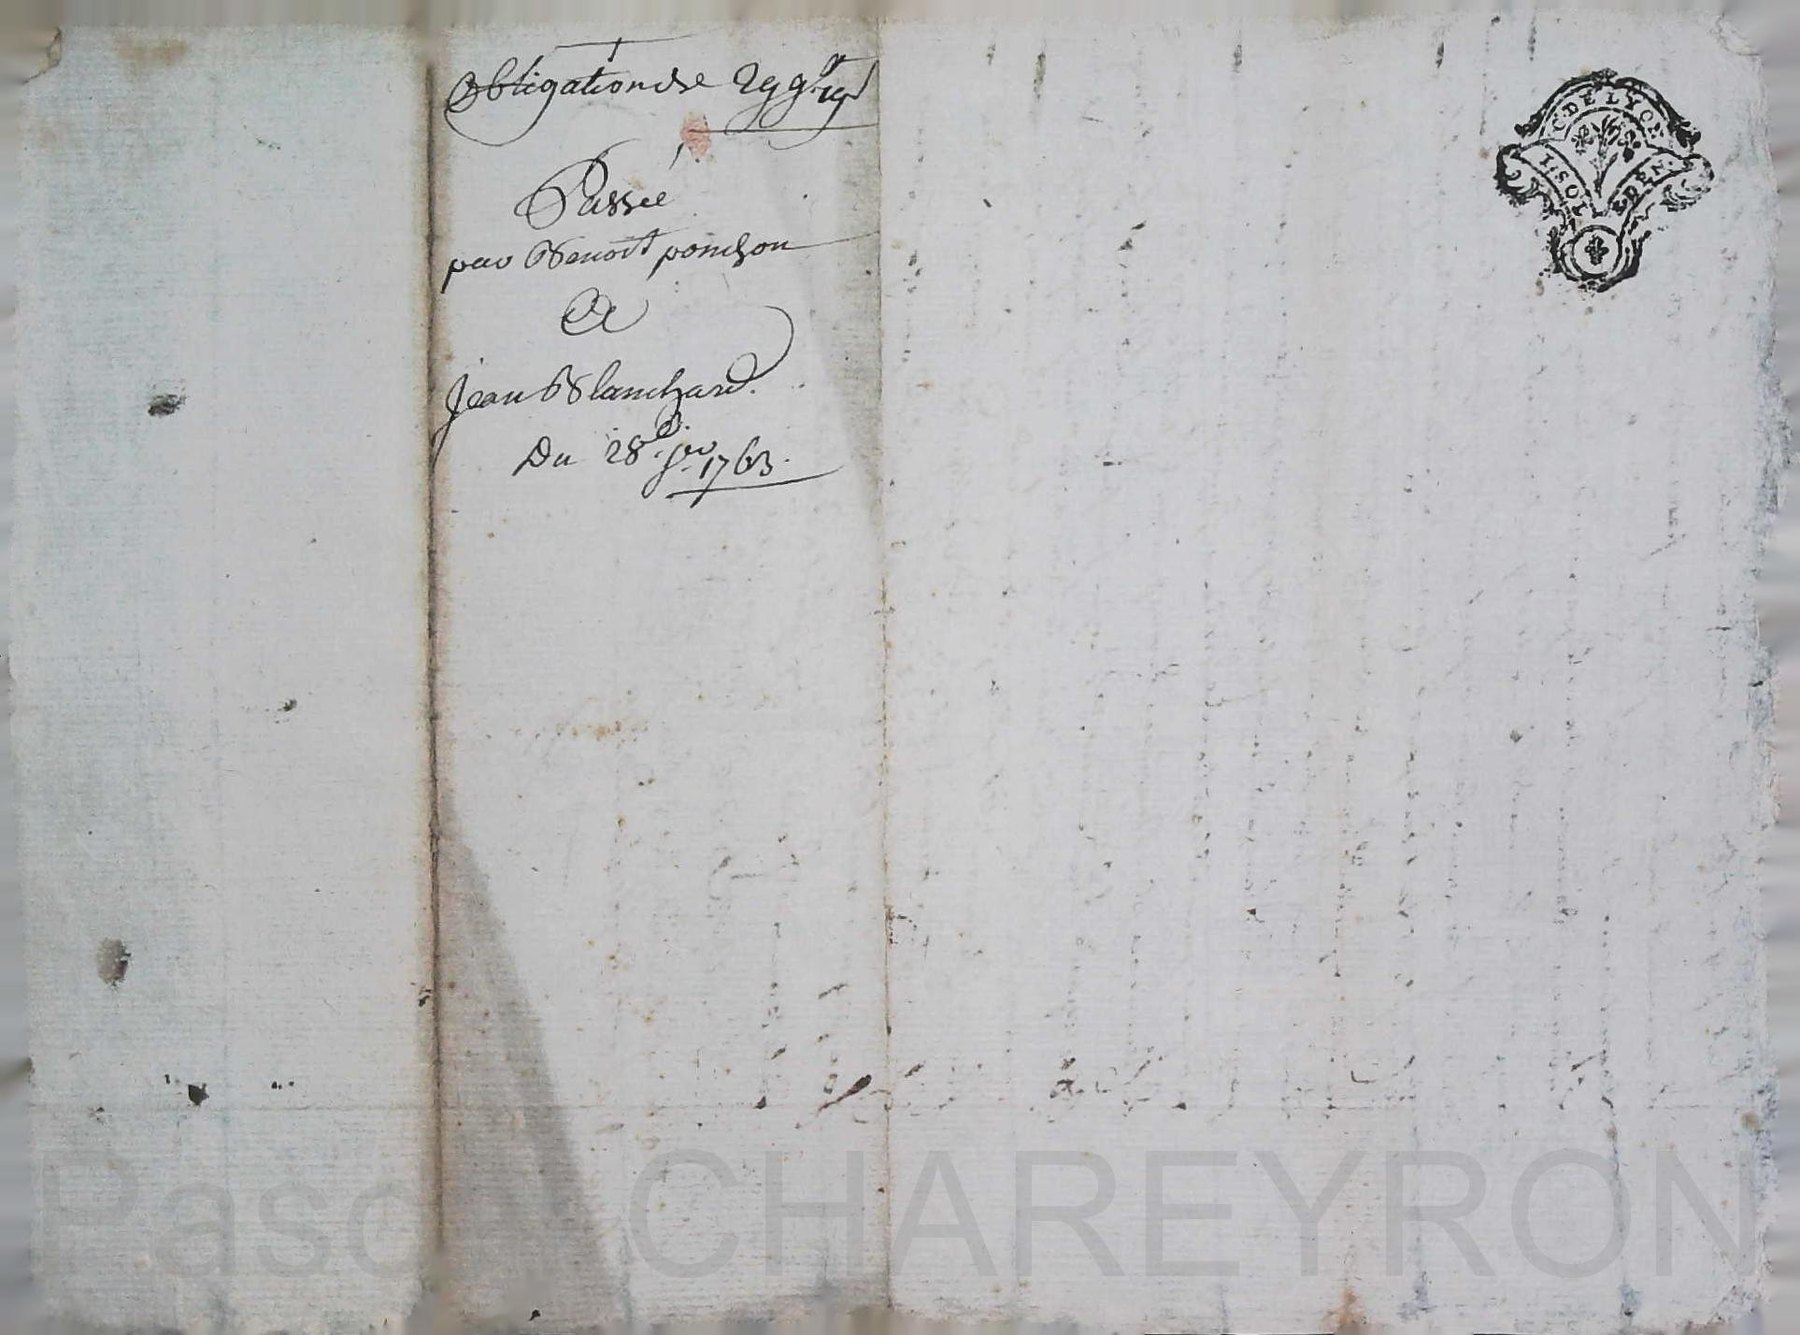 Obligation de 299# 19s
Passée
par Benoit ponchon
A
Jean Blanchard.
Du 28e. jer. 1763.
G. DE LYON
1. SOL 8. DEN.
Pascal CHAREYRON